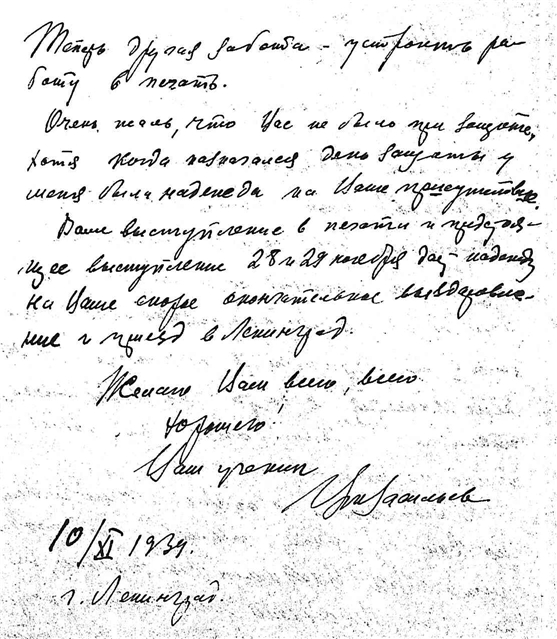 Теперь другая забота – устроить ра-
боту в печать.
Очень жаль, что Вас не было при защите,
хотя когда назначался день защиты у
меня была надежда на Ваше присутствие.
Ваше выступление в печати и предстоя-
щее выступление 28 и 29 ноября дает надежду
на Ваше скорое окончательное выздоровле-
ние и приезд в Ленинград.
Желаю Вам всего, всего
хорошего!
Ваш ученик
10/XI 1939.
г. Ленинград.